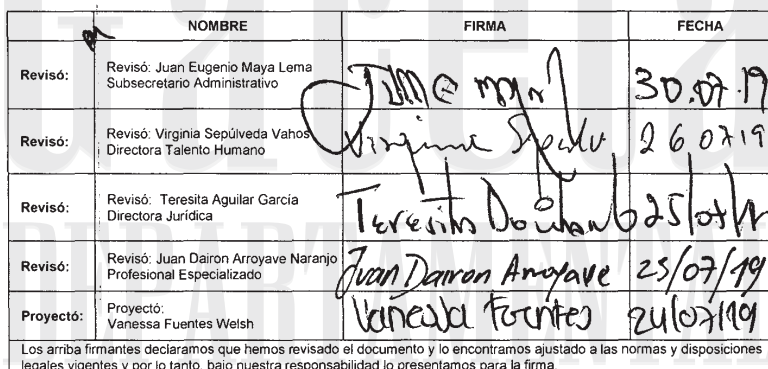 NOMBRE FIRMA FECHA
Revisó: Revisó: Juan Eugenio Maya Lema
Subsecretario Administrativo 30.07.19
Revisó: Revisó: Virginia Sepúlveda Vahos
Directora Talento Humano 26 07 19
Revisó: Revisó: Teresita Aguilar García
Directora Jurídica Teresita 25/07/19
Revisó: Revisó: Juan Dairon Arroyave Naranjo
Profesional Especializado Juan Dairon Arroyave 25/07/19
Proyectó: Proyectó:
Vanessa Fuentes Welsh Vanessa Fuentes 24/07/19
Los arriba firmantes declaramos que hemos revisado el documento y lo encontramos ajustado a las normas y disposiciones
legales vigentes y por lo tanto, bajo nuestra responsabilidad lo presentamos para la firma.